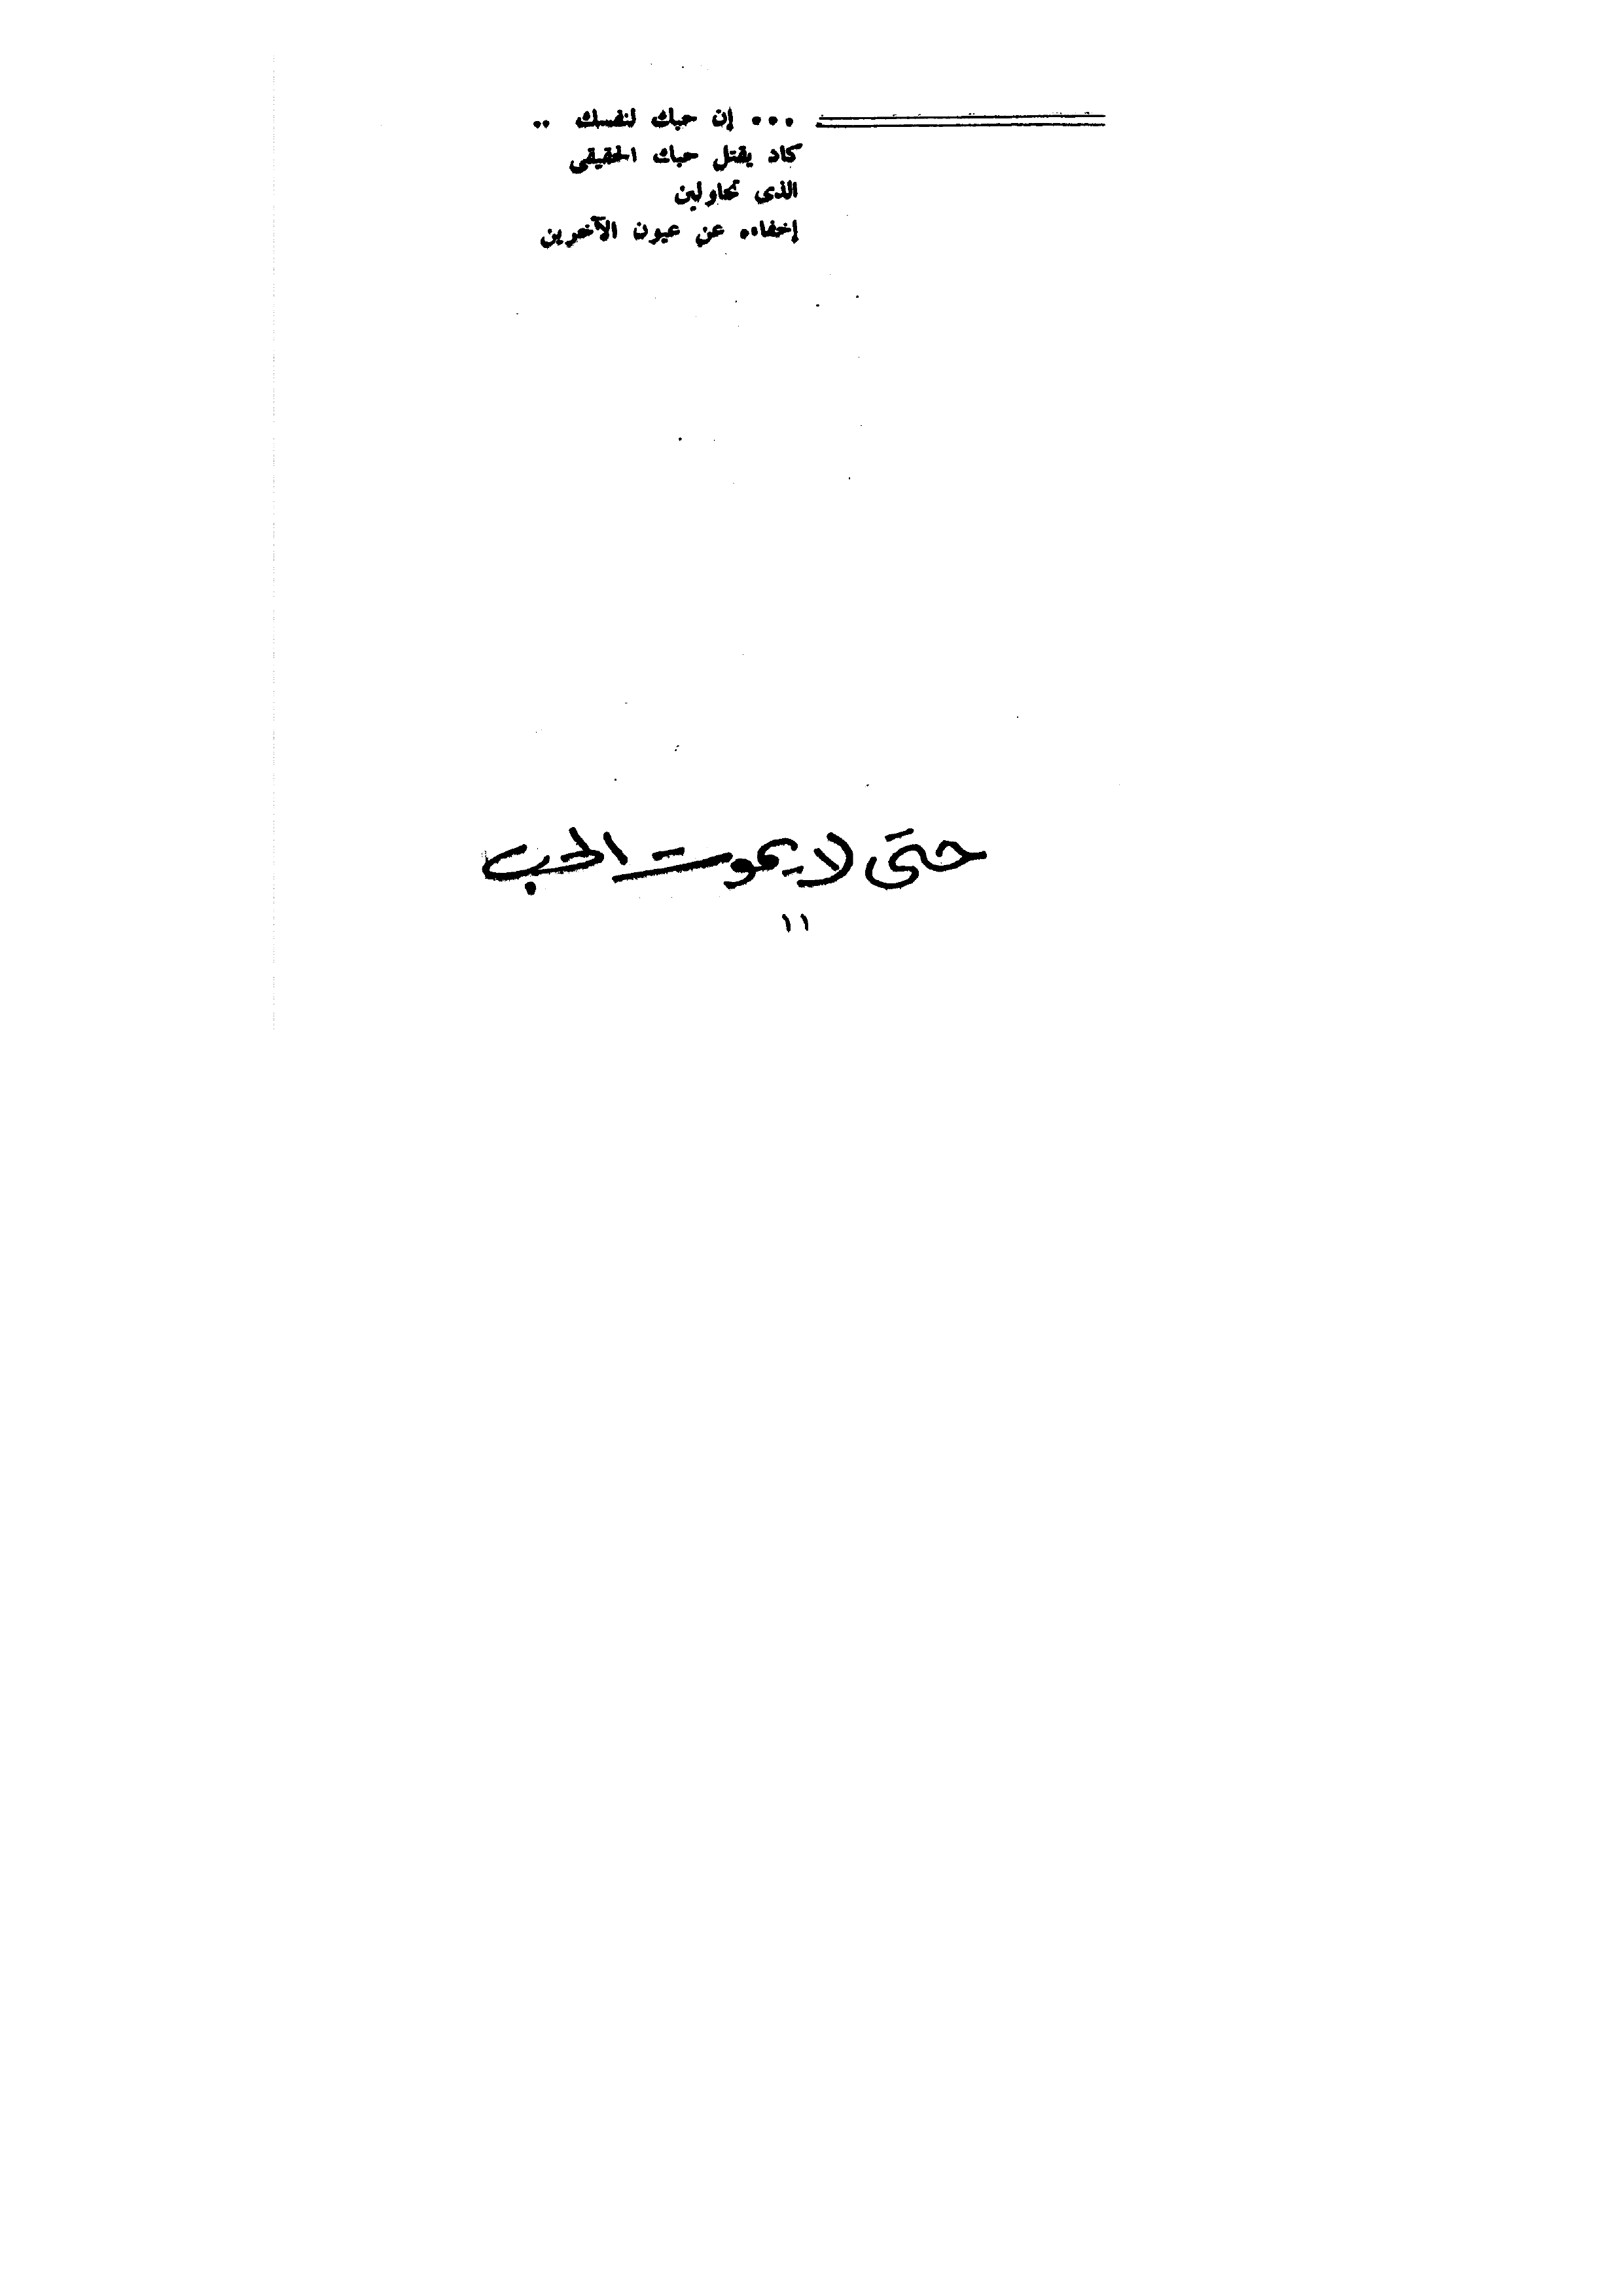 ... إن حبك لنفسك ..
كاد يقتل حبك الحقيقى
الذى تحاولين
إخفاءه عن عيون الآخرين
حتى لا يموت الحب
١١